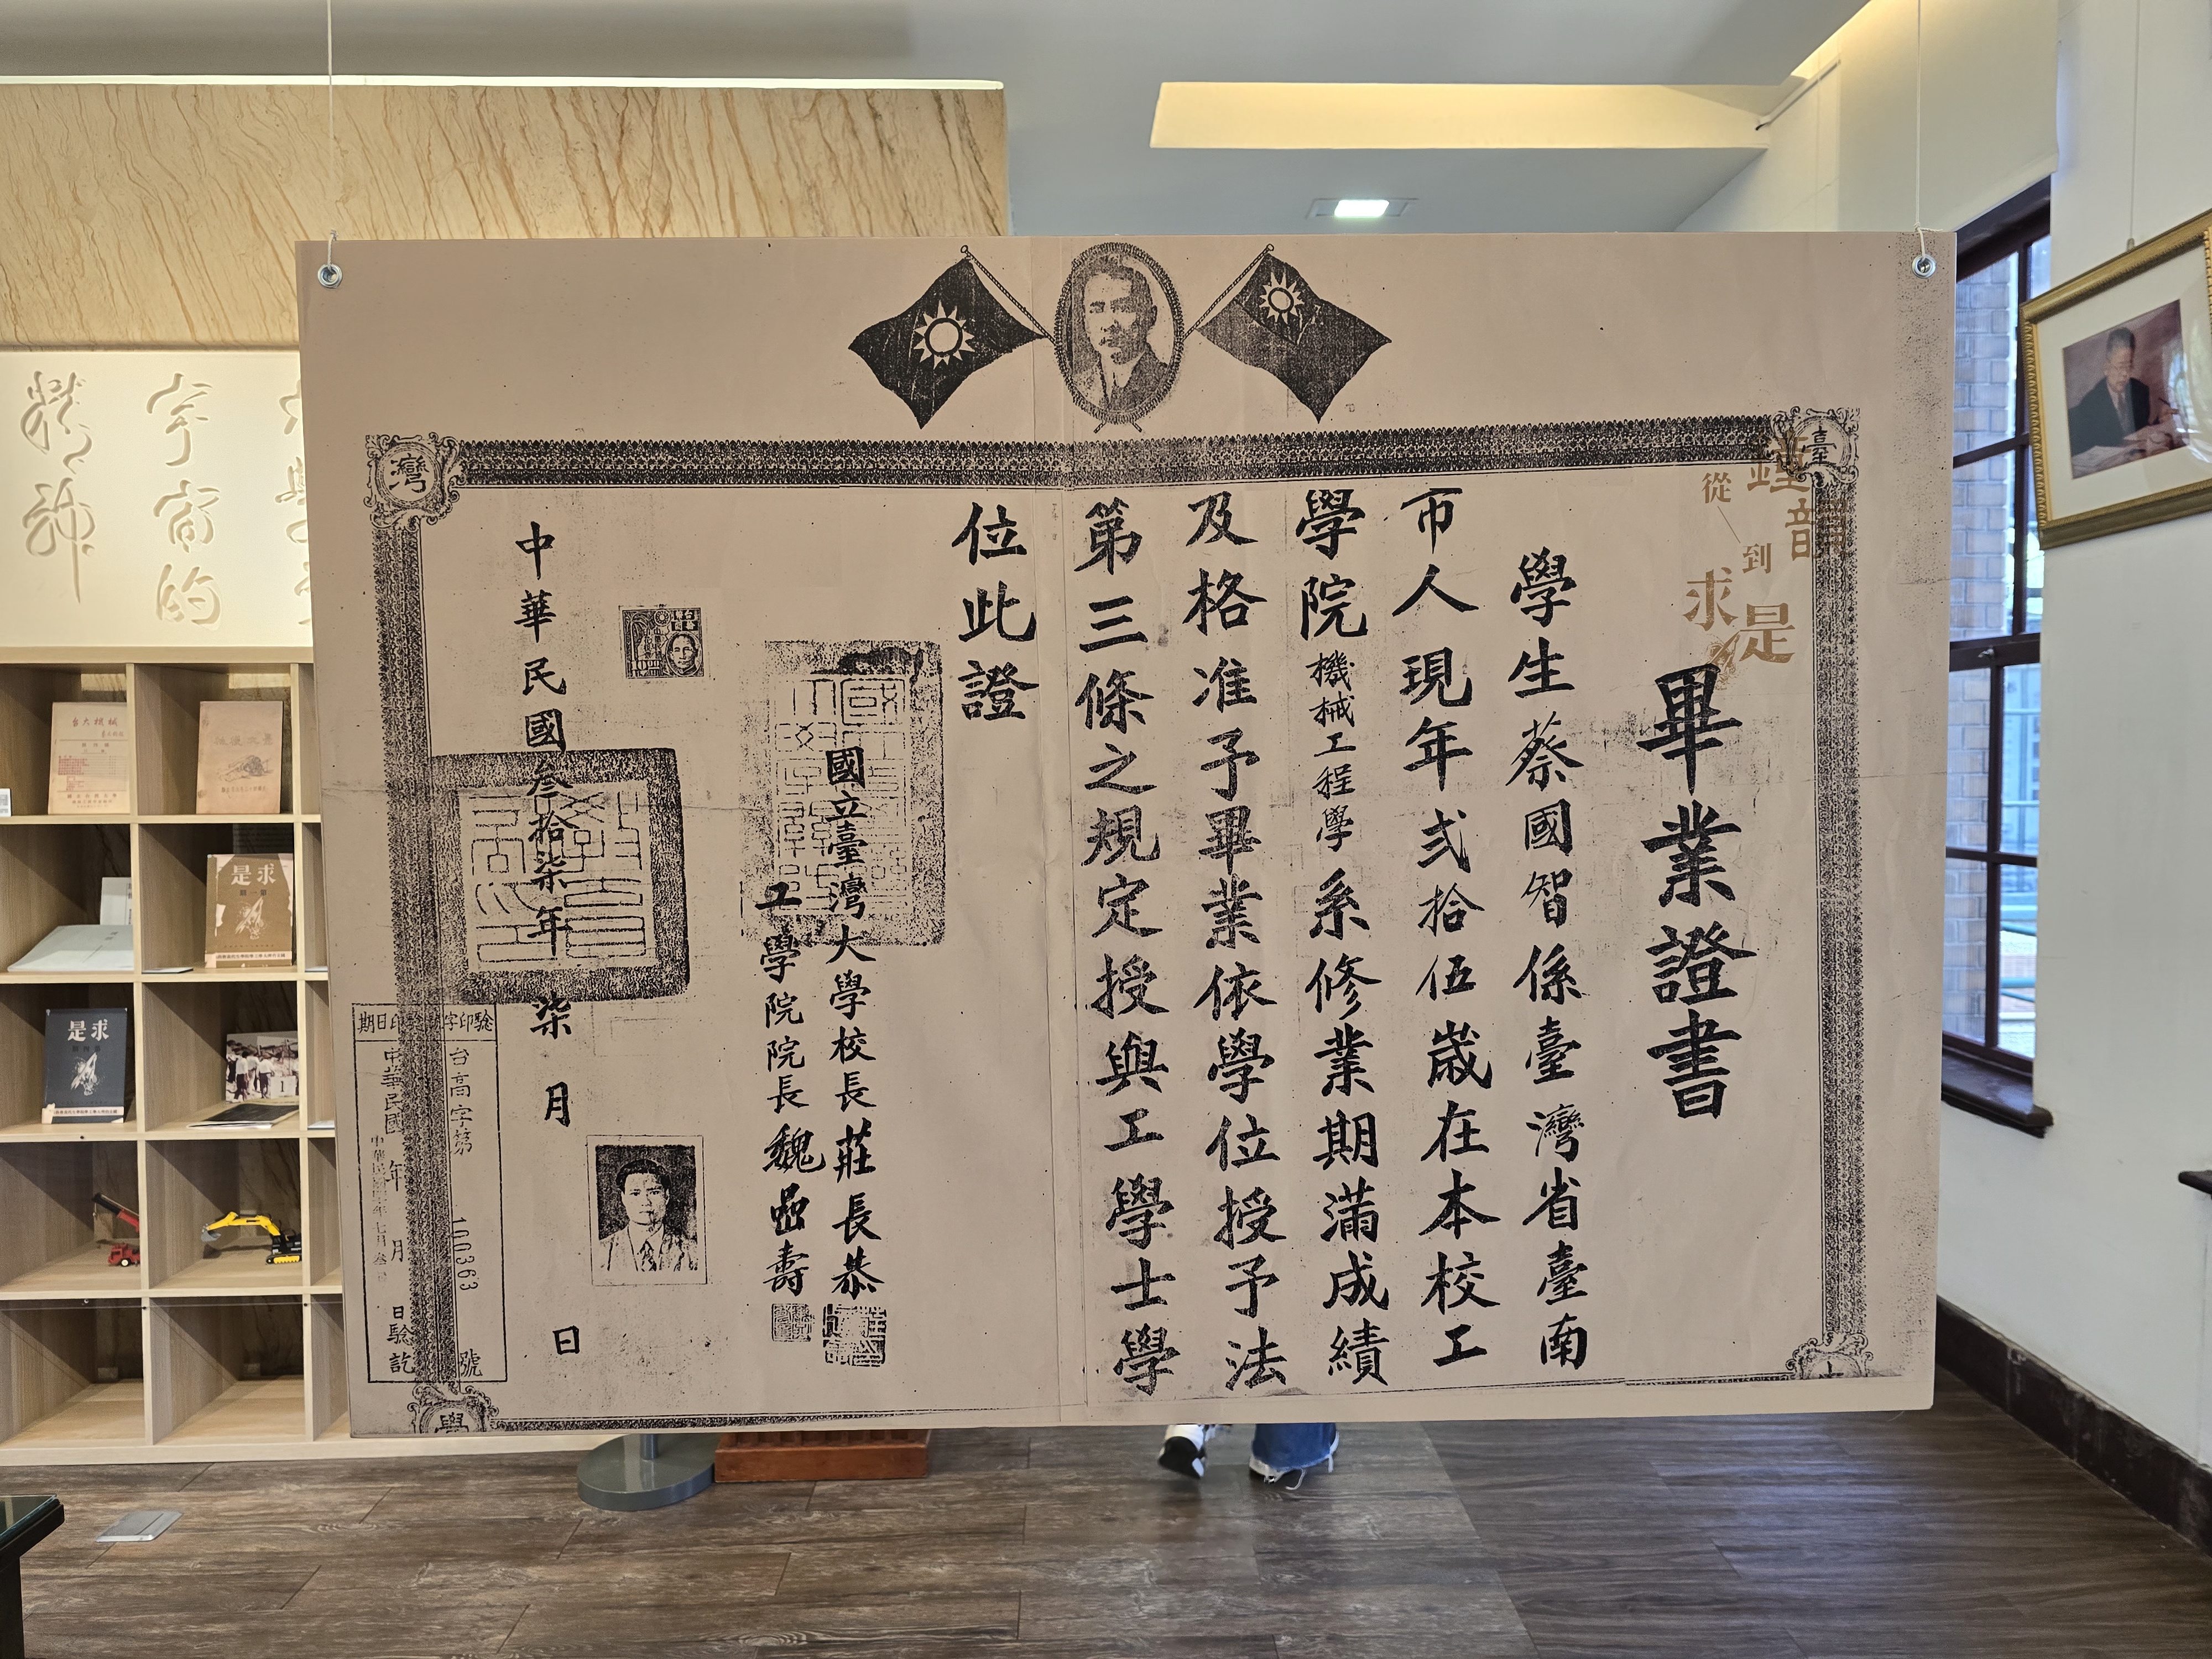 畢業證書
學生蔡國智係臺灣省臺南
市人現年貳拾伍歲在本校工
學院機械工程學系修業期滿成績
及格准予畢業依學位授予法
第三條之規定授與工學士學
位此證
國立臺灣大學校長莊長恭
工學院院長魏嵒壽
中華民國叁拾柒年柒月日
臺
灣
學
從
到
求是
鐘韻
驗印字號
台高字第100363號
驗印日期
中華民國年月日驗訖
宇宙的
精神
台大機械
求是
求是